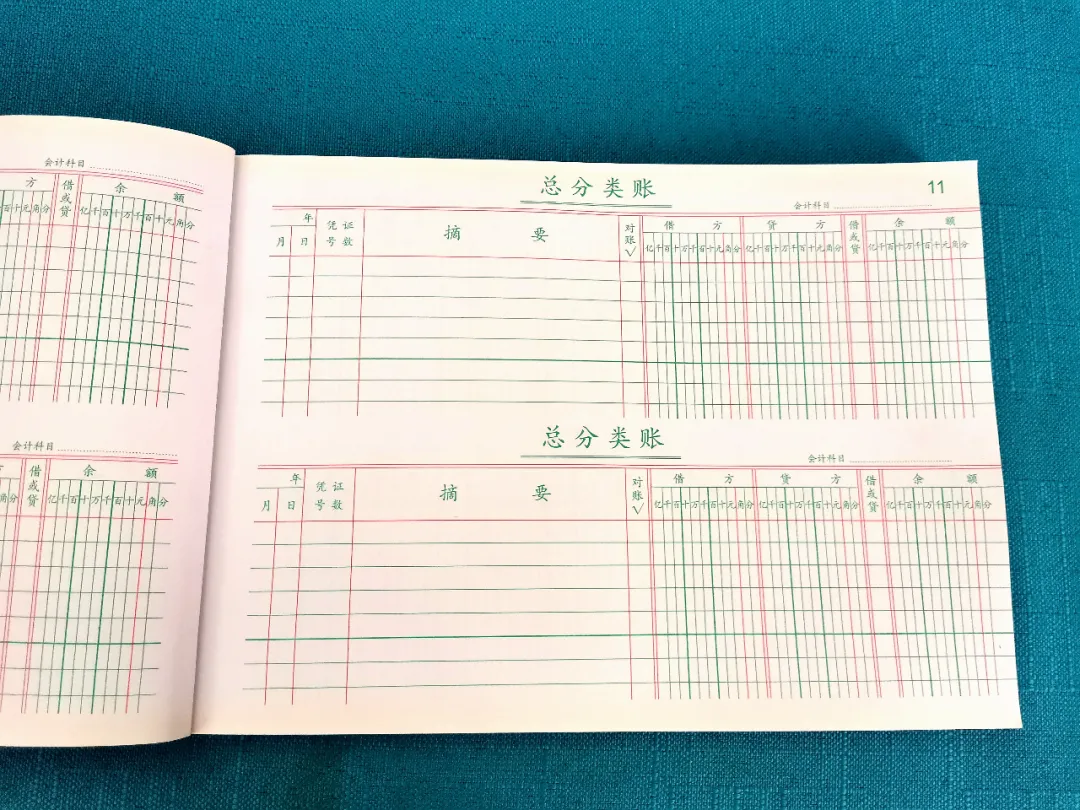 会计科目
方 借或贷 余 额
百十元角分 亿千百十万千百十元角分
会计科目
方 借或贷 余 额
角分 亿千百十万千百十元角分
总分类账 11
会计科目
年 凭证 摘要 对账√ 借方 贷方 借或贷 余额
月 日 号数 亿千百十万千百十元角分 亿千百十万千百十元角分 亿千百十万千百十元角分
总分类账
会计科目
年 凭证 摘要 对账√ 借方 贷方 借或贷 余额
月 日 号数 亿千百十万千百十元角分 亿千百十万千百十元角分 亿千百十万千百十元角分